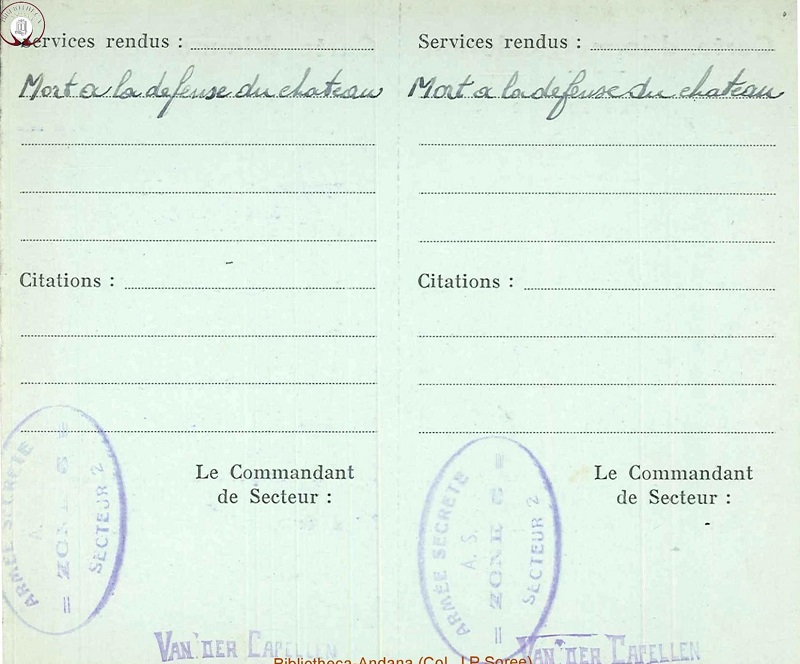 Services rendus :
Mort a la defense du chateau
Citations :
Le Commandant
de Secteur :
ARMÉE SECRÈTE
A. S.
= ZONE 6 =
SECTEUR 2
VAN DER CAPELLEN
Services rendus :
Mort a la defense du chateau
Citations :
Le Commandant
de Secteur :
ARMÉE SECRÈTE
A. S.
= ZONE 6 =
SECTEUR 2
VAN DER CAPELLEN
Bibliotheca Andana (Col. J P Soree)